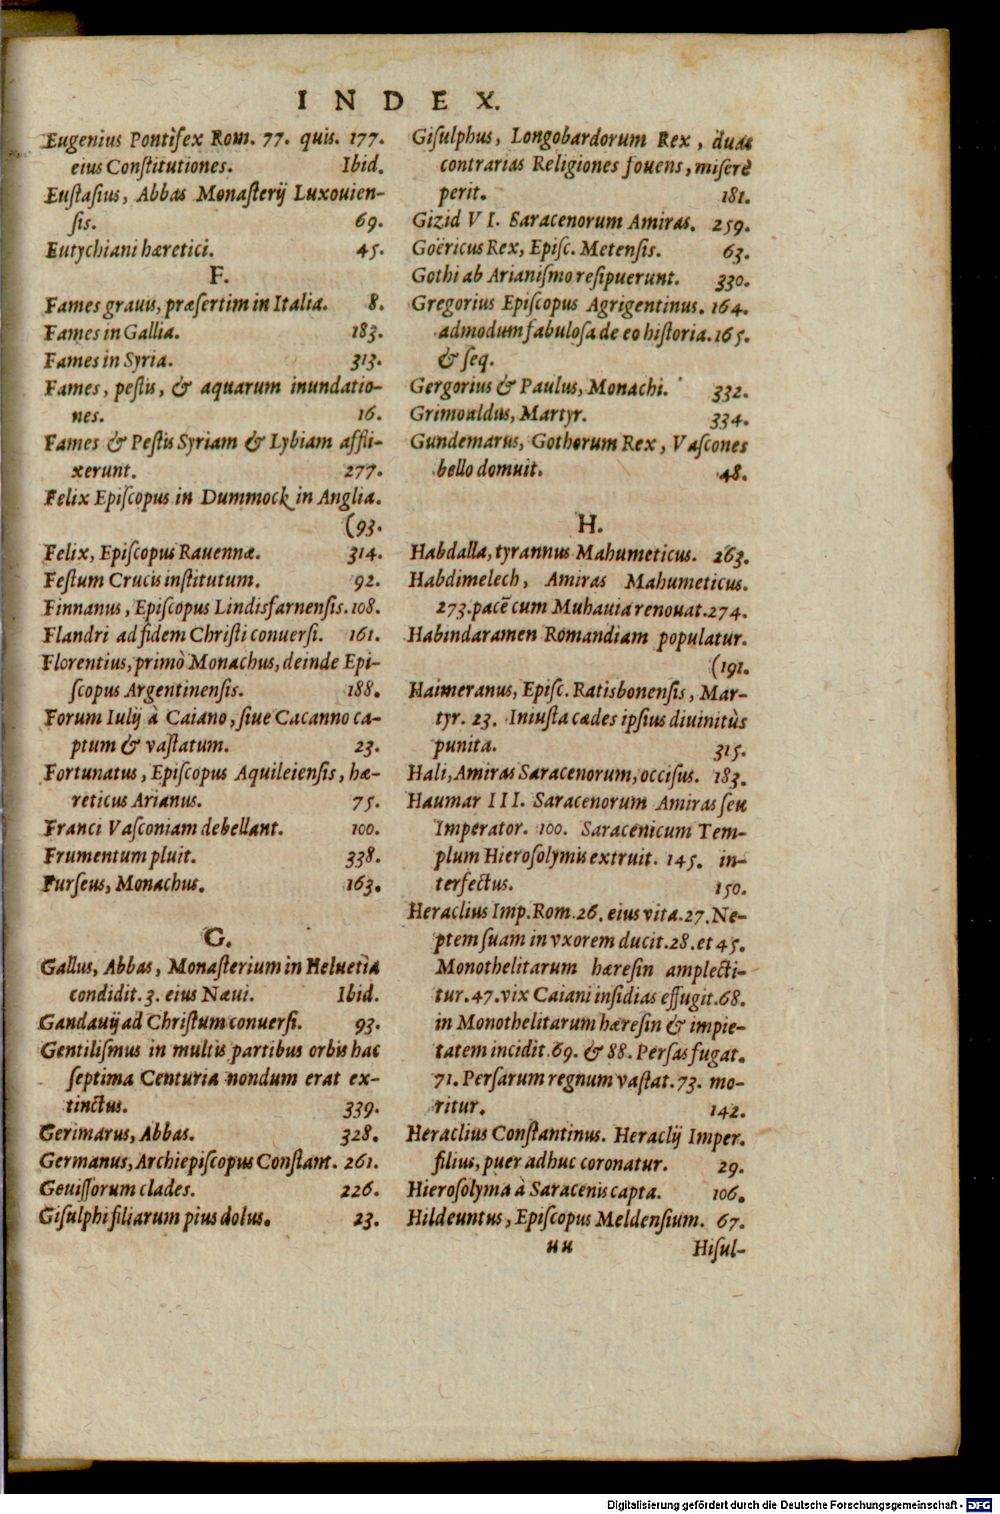 INDEX.
Eugenius Pontifex Rom. 77. quis. 177.
eius Conſtitutiones. Ibid.
Euſtaſius, Abbas Monaſterij Luxouien-
ſis. 69.
Eutychiani hæretici. 45.
F.
Fames grauis, præſertim in Italia. 8.
Fames in Gallia. 183.
Fames in Syria. 313.
Fames, peſtis, & aquarum inundatio-
nes. 16.
Fames & Peſtis Syriam & Lybiam affli-
xerunt. 277.
Felix Epiſcopus in Dummock in Anglia.
(93.
Felix, Epiſcopus Rauennæ. 314.
Feſtum Crucis inſtitutum. 92.
Finnanus, Epiſcopus Lindisfarnenſis. 108.
Flandri ad fidem Chriſti conuerſi. 161.
Florentius, primò Monachus, deinde Epi-
ſcopus Argentinenſis. 188.
Forum Iulij à Caiano, ſiue Cacanno ca-
ptum & vaſtatum. 23.
Fortunatus, Epiſcopus Aquileienſis, hæ-
reticus Arianus. 75.
Franci Vaſconiam debellant. 100.
Frumentum pluit. 338.
Furſeus, Monachus. 163.
G.
Gallus, Abbas, Monaſterium in Heluetia
condidit. 3. eius Næui. Ibid.
Gandauij ad Chriſtum conuerſi. 93.
Gentiliſmus in multis partibus orbis hac
ſeptima Centuria nondum erat ex-
tinctus. 339.
Gerimarus, Abbas. 328.
Germanus, Archiepiſcopus Conſtant. 261.
Geuiſſorum clades. 226.
Giſulphi filiarum pius dolus. 23.
Giſulphus, Longobardorum Rex, duas
contrarias Religiones fouens, miſerè
perit. 181.
Gizid VI. Saracenorum Amiras. 259.
Goëricus Rex, Epiſc. Metenſis. 63.
Gothi ab Arianiſmo reſipuerunt. 330.
Gregorius Epiſcopus Agrigentinus. 164.
admodum fabuloſa de eo hiſtoria. 165.
& ſeq.
Gergorius & Paulus, Monachi. 332.
Grimoaldus, Martyr. 334.
Gundemarus, Gothorum Rex, Vaſcones
bello domuit. 48.
H.
Habdalla, tyrannus Mahumeticus. 263.
Habdimelech, Amiras Mahumeticus.
273. pacē cum Muhauia renouat. 274.
Habindaramen Romandiam populatur.
(191.
Haimeranus, Epiſc. Ratisbonenſis, Mar-
tyr. 23. Iniuſta cædes ipſius diuinitùs
punita. 315.
Hali, Amiras Saracenorum, occiſus. 183.
Haumar III. Saracenorum Amiras ſeu
Imperator. 100. Saracenicum Tem-
plum Hieroſolymis extruit. 145. in-
terfectus. 150.
Heraclius Imp. Rom. 26. eius vita. 27. Ne-
ptem ſuam in vxorem ducit. 28. et 45.
Monothelitarum hæreſin amplecti-
tur. 47. vix Caiani inſidias effugit. 68.
in Monothelitarum hæreſin & impie-
tatem incidit. 69. & 88. Perſas fugat.
71. Perſarum regnum vaſtat. 73. mo-
ritur. 142.
Heraclius Conſtantinus. Heraclij Imper.
filius, puer adhuc coronatur. 29.
Hieroſolyma à Saracenis capta. 106.
Hildeuntus, Epiſcopus Meldenſium. 67.
uu Hiſul-
Digitalisierung gefördert durch die Deutsche Forschungsgemeinschaft - DFG